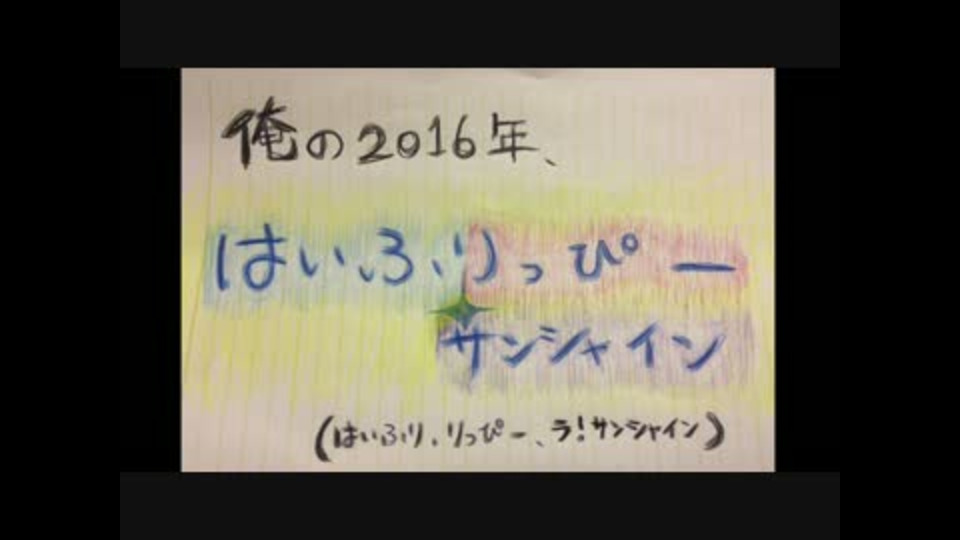 俺の2016年、
はいふりっぴー
サンシャイン
(はいふり、りっぴー、ラ!サンシャイン)